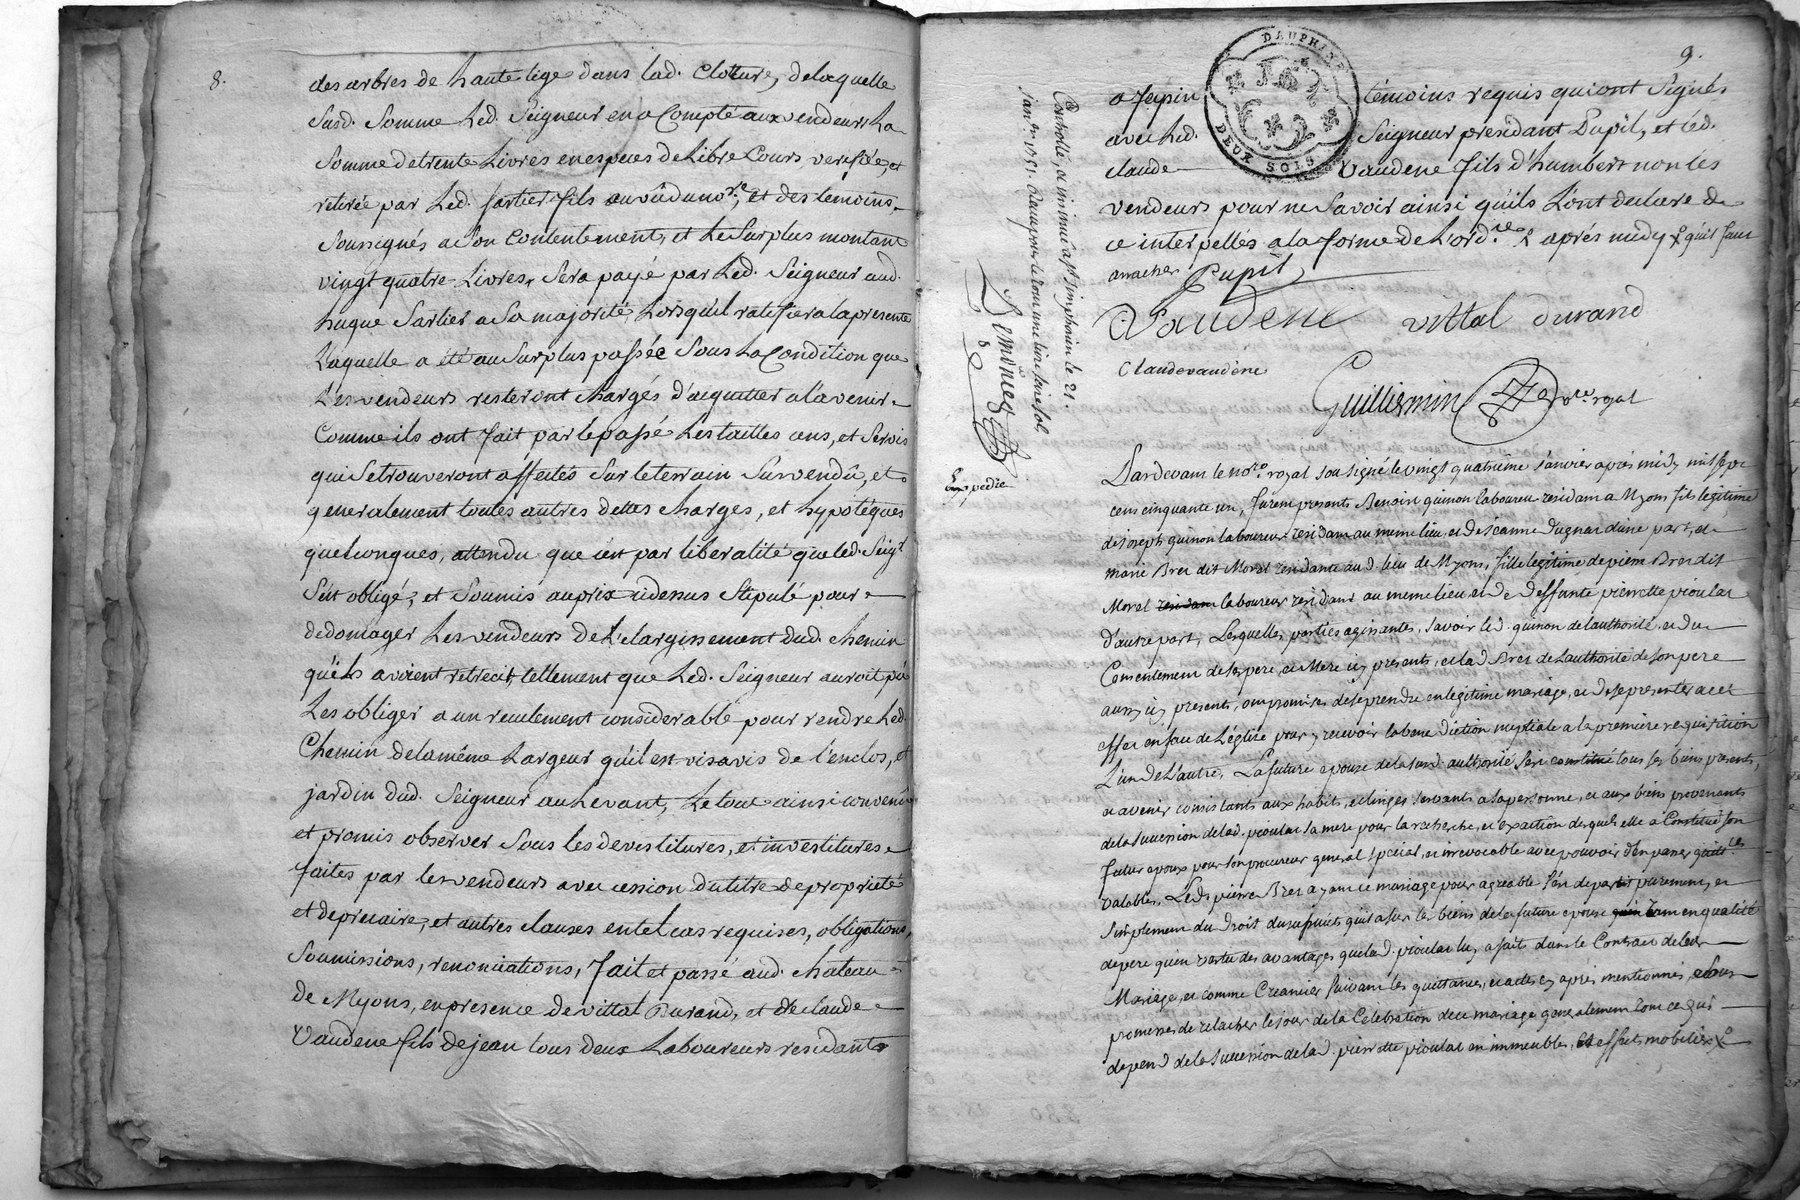 8.
des arbres de haute tige dans lad. Cloture, de laquelle
Susd. Somme Led. Seigneur en a Compté aux vendeurs La
Somme de trente Livres en especes de Libre Cours, verifiée, et
retirée par Led. Sartier fils au vû du no.re, et des temoins
Soussignés a Son Contentement, et Le Surplus montant
vingt quatre Livres, Sera payé par Led. Seigneur aud.
hugue Sartier a Sa majorité, Lorsqu'il ratifiera la presente
Laquelle a été au Surplus passée Sous La Condition que
Les vendeurs resteront chargés d'acquitter a l'avenir
Comme ils ont fait par le passé Les tailles cens, et Servis
qui Se trouveront affectés Sur le terrain Survendû, et
generalement toutes autres dettes charges, et hypotéques
quelconques, attendu que c'est par liberalité que led. Seigr.
S'est obligé, et Soumis au prix cidessus Stipulé pour
dedomager Les vendeurs de L'elargissement dud. chemin
qu'ils avoient retrecit, tellement que Led. Seigneur auroit pû
Les obliger a un reculement considerable pour rendre Led.
Chemin de la même Largeur qu'il est vis avis de l'enclos, et
jardin dud. Seigneur au Levant, Le tout ainsi convenu
et promis observer Sous les devestitures, et investitures
faites par les vendeurs avec cession du titre de proprieté
et de precaire, et autres clauses en tel cas requises, obligations,
Soumissions, renonciations, fait et passé aud. chateau
de Myons, en presence de vittal Durand, et de claude
Vaudene fils de jean tous deux Laboureurs residants
9.
DAUPHINÉ
DEUX SOLS
a Jepin temoins requis qui ont Signés
avec Led. Seigneur president Pupil, et led.
claude Vaudene fils d'humbert non les
vendeurs pour ne Savoir ainsi qu'ils L'ont declaré de
ce interpellés a la forme de L'ord.ce aprés midy
arracher Pupil
C. Vaudene vittal durand
Claude vaudene
Guilliermin no.re royal
Controllé, et insinué a St Simphorien le 21.
Expedie
Pardevant le no.re royal sousigné le vingt quatrieme janvier après midy mil sept
cent cinquante un, furent presents Benoist quinon laboureur residant a Myons fils legitime
de joseph quinon laboureur residant au meme lieu, et de jeanne dugnat d'une part, et
marie Bret dit Morel residante aud. lieu de Myons, fille legitime de pierre Bret dit
Morel residant laboureur residant au meme lieu et de deffunte pierrette pioulat
d'autre part, Lesquelles parties agissantes, savoir led. quinon de l'authorité et du
Consentement de ses pere, et Mere icy presents, et lad. Bret de L'authorité de son pere
aussy icy present, ont promis de se prendre en legitime mariage, et de se presenter a cet
effet en face de L'église pour y recevoir la benediction nuptiale a la premiere requisition
L'un de L'autre, La future epouse de la susd. authorité s'est constitué tous ses biens presents,
et avenir consistants aux habits, et linges servants a sa personne, et aux biens provenants
de la succession de lad. pioulat sa mere pour la recherche, et exaction desquels elle a Constitué son
futur epoux pour son procureur general special, et irrevocable avec pouvoir d'en passer quitt.ces
valables, Led. pierre Bret ayant ce mariage pour agreable s'est departit purement, et
simplement du Droit d'usufruits qu'il a sur les biens de la future epouse tant en qualité
de pere qu'en vertu des avantages que lad. pioulat luy a fait dans le Contrat de leur
Mariage, et comme Creancier suivant les quittances, et actes cy aprés mentionnés, avec
promesse de relacher le jour de la Celebration de ce mariage generalement tout ce qui
depend de la succession de lad. pierrette pioulat en immeubles, et effets mobiliers